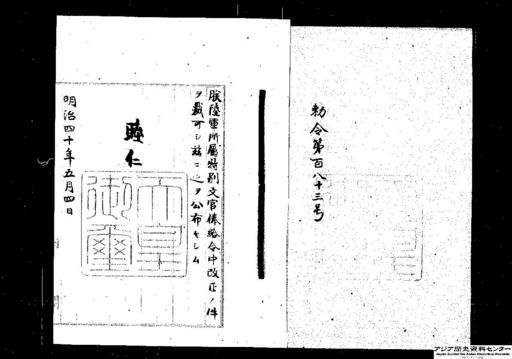 勅令第百八十三号
朕陸軍所属特別文官俸給令中改正ノ件
ヲ裁可シ茲ニ之ヲ公布セシム
睦仁
天皇御璽
明治四十年五月四日
アジア歴史資料センター
Japan Center for Asian Historical Records